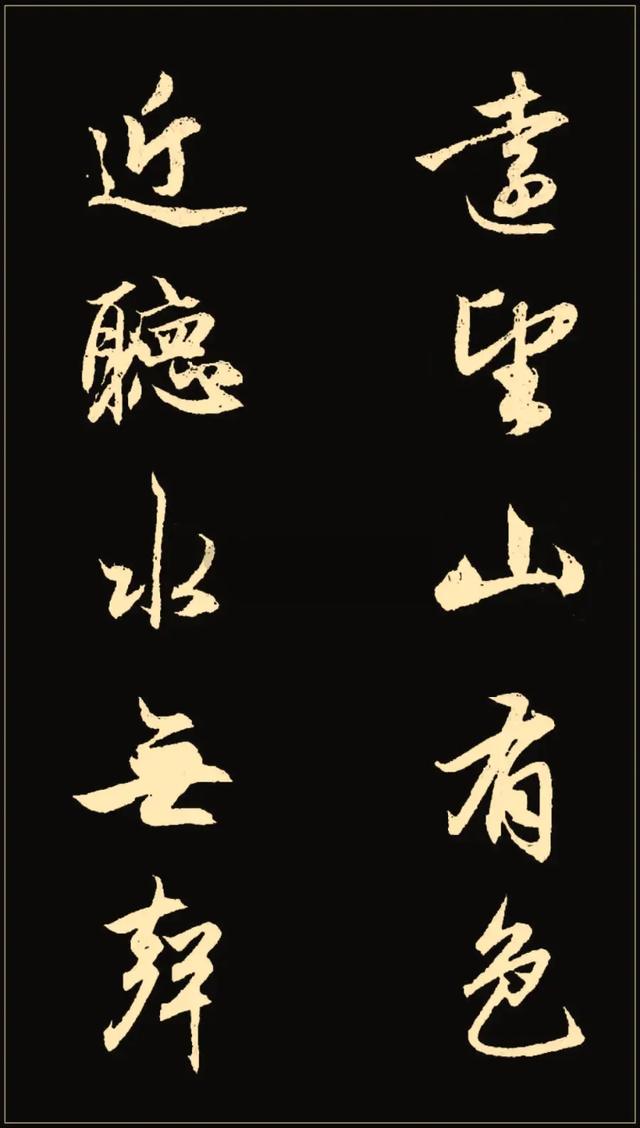 遠望山有色
近聽水無聲